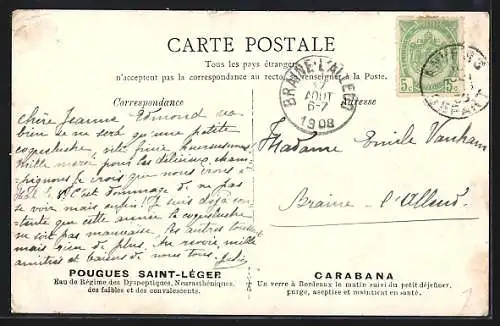 CARTE POSTALE
Tous les pays étrangers
n'acceptent pas la correspondance au recto, se renseigner à la Poste.
Correspondance
Adresse
BRAINE-L'ALLEUD
AOUT
6-7
1908
ANVERS
5c 5c
Chère Jeanne Edmond va
bien ce ne sera qu'une petite
coqueluche, vite finie heureusement
Mille mercis pour les délicieux cham-
pignons je crois que nous irons
C'est dommage de ne pas
se voir mais enfin! Je suis déjà con-
tente que cette année la coqueluche
ne soit pas mauvaise. Les autres toussent
mais rien de plus. Au revoir, mille
amitiés et baisers de nous tous.
Madame Emile Vanham
Braine - l'Alleud.
POUGUES SAINT-LÉGER
Eau de Régime des Dyspeptiques, Neurasthéniques,
des faibles et des convalescents.
CARABANA
Un verre à Bordeaux le matin suivi du petit déjeûner,
purge, aseptise et maintient en santé.